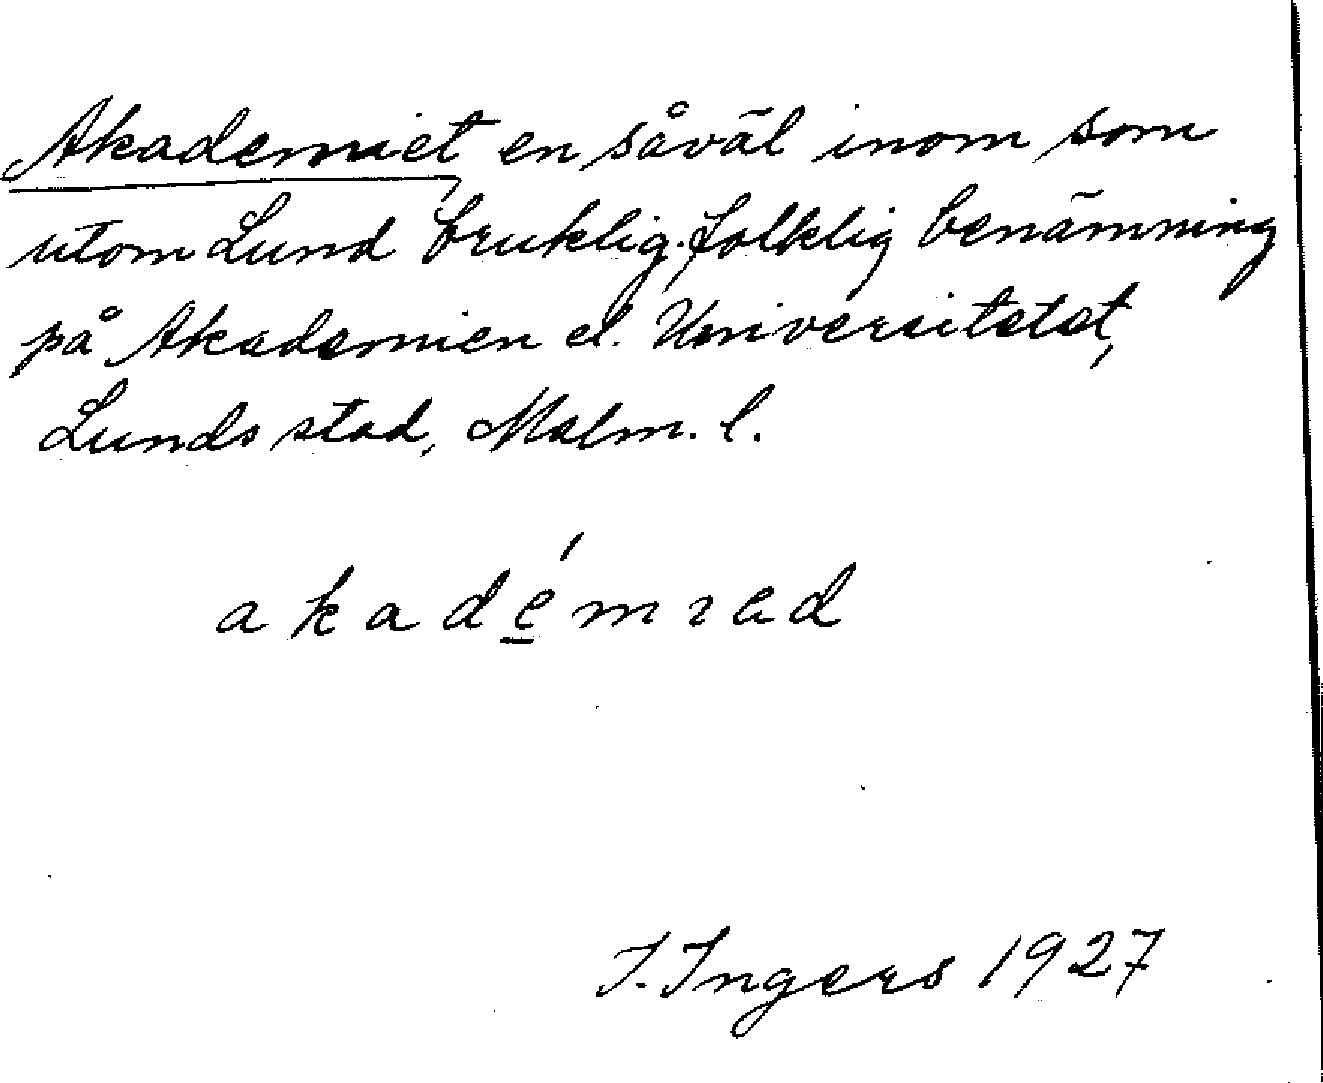 Akademiet, en såväl inom som
utom Lund bruklig folklig benämning
på Akademien el. Universitetet,
Lunds stad, Malm. l.
akadémıəd
I. Ingers 1927